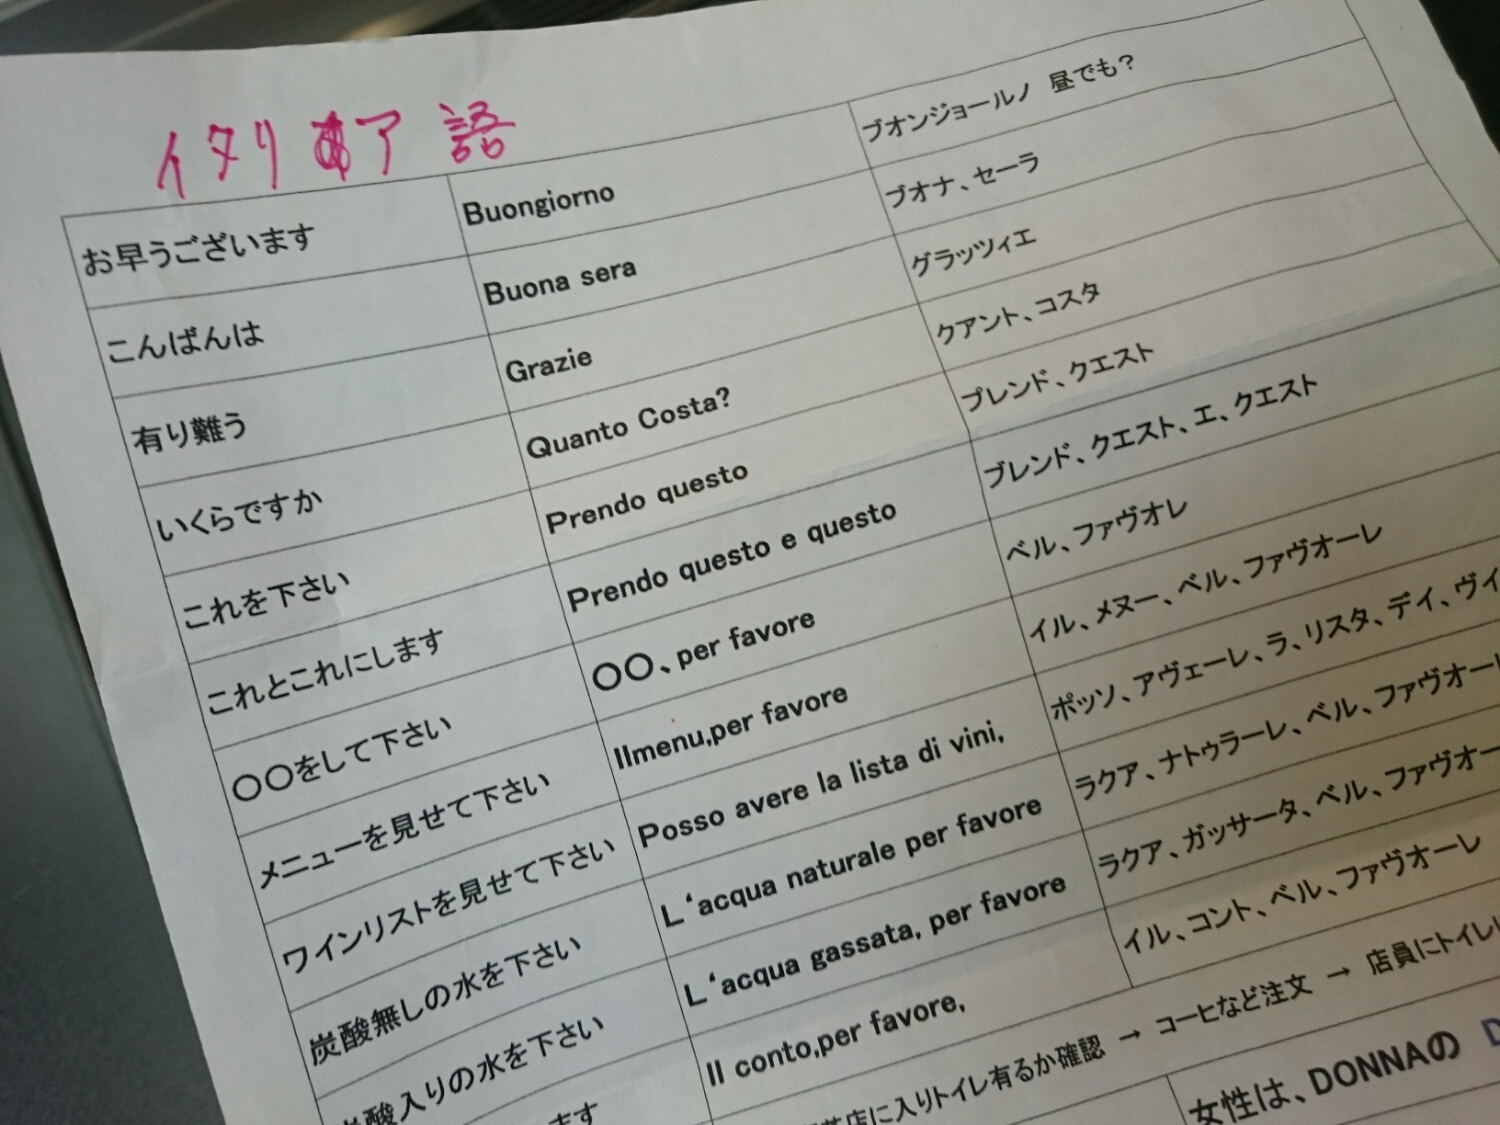 イタリア 語
お早うございます Buongiorno ブオンジョールノ 昼でも?
こんばんは Buona sera ブオナ、セーラ
有り難う Grazie グラッツィエ
いくらですか Quanto Costa? クアント、コスタ
これを下さい Prendo questo プレンド、クエスト
これとこれにします Prendo questo e questo プレンド、クエスト、エ、クエスト
〇〇をして下さい 〇〇、per favore ベル、ファヴオレ
メニューを見せて下さい Ilmenu,per favore イル、メヌー、ベル、ファヴオーレ
ワインリストを見せて下さい Posso avere la lista di vini, ポッソ、アヴェーレ、ラ、リスタ、デイ、ヴイ
炭酸無しの水を下さい L‘acqua naturale per favore ラクア、ナトゥラーレ、ベル、ファヴオー
炭酸入りの水を下さい L‘acqua gassata, per favore ラクア、ガッサータ、ベル、ファヴオー
ます Il conto,per favore, イル、コント、ベル、ファヴオーレ
店に入りトイレ有るか確認 → コーヒなど注文 → 店員にトイレ
女性は、DONNAの D